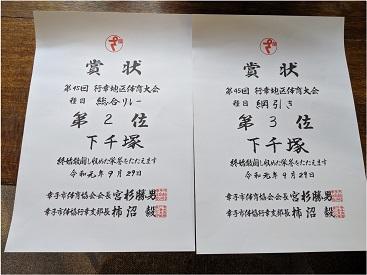 賞状
第45回 行幸地区体育大会
種目 総合リレー
第 2 位
下千塚
終始敢闘し収めた栄誉をたたえます
令和元年9月29日
幸手市体育協会会長 宮杉勝男
幸手市体協行幸支部長 柿沼 毅
賞状
第45回 行幸地区体育大会
種目 綱引き
第 3 位
下千塚
終始敢闘し収めた栄誉をたたえます
令和元年9月29日
幸手市体育協会会長 宮杉勝男
幸手市体協行幸支部長 柿沼 毅